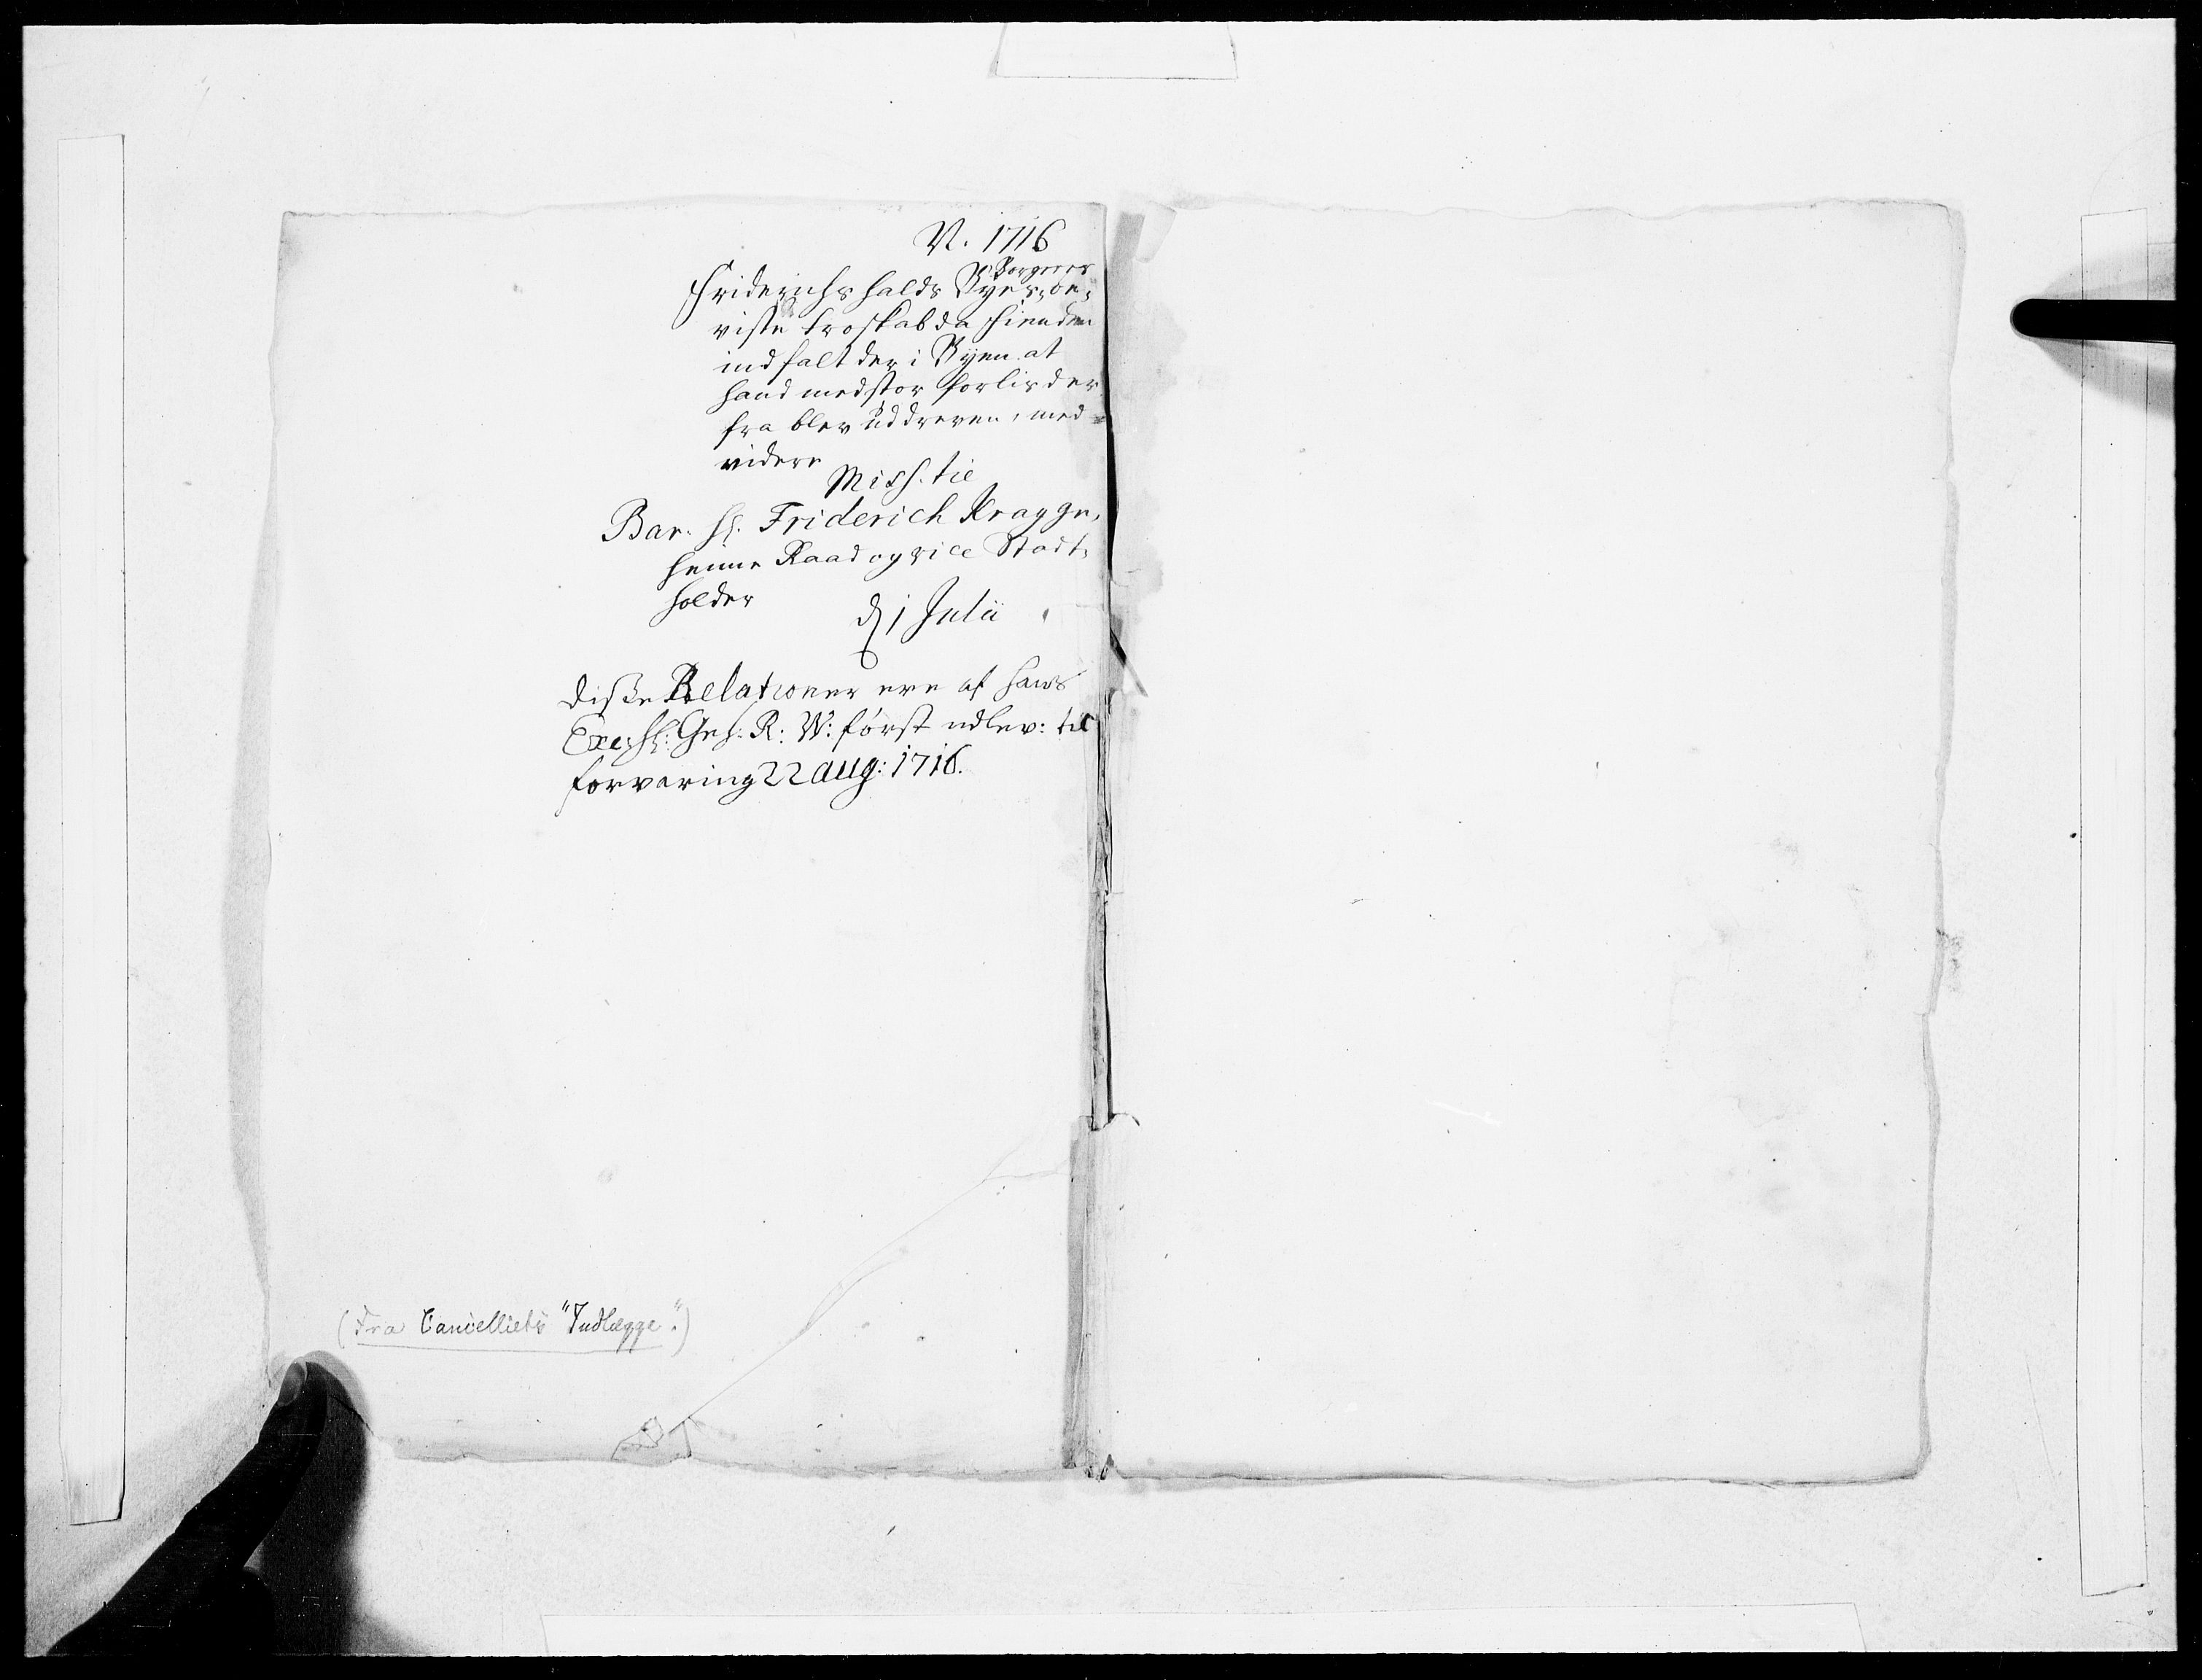 N. 1716
Borgeres
Friderichshalds Byes be,
viste troskab da Fienden
indfalt der i Byen at
hand med stor forlis der
fra blev uddreven, med
videre
Miss. til
Bar. H: Friderich Krag ge,
heime Raad og vice Stadt,
holder
d 1 Julii
disse Relationer ere af hans
Exc: H: Geh. R: W: først udlev: til
forvaring 22 Aug: 1716.
(Fra Cancelliets "Indlægge".)